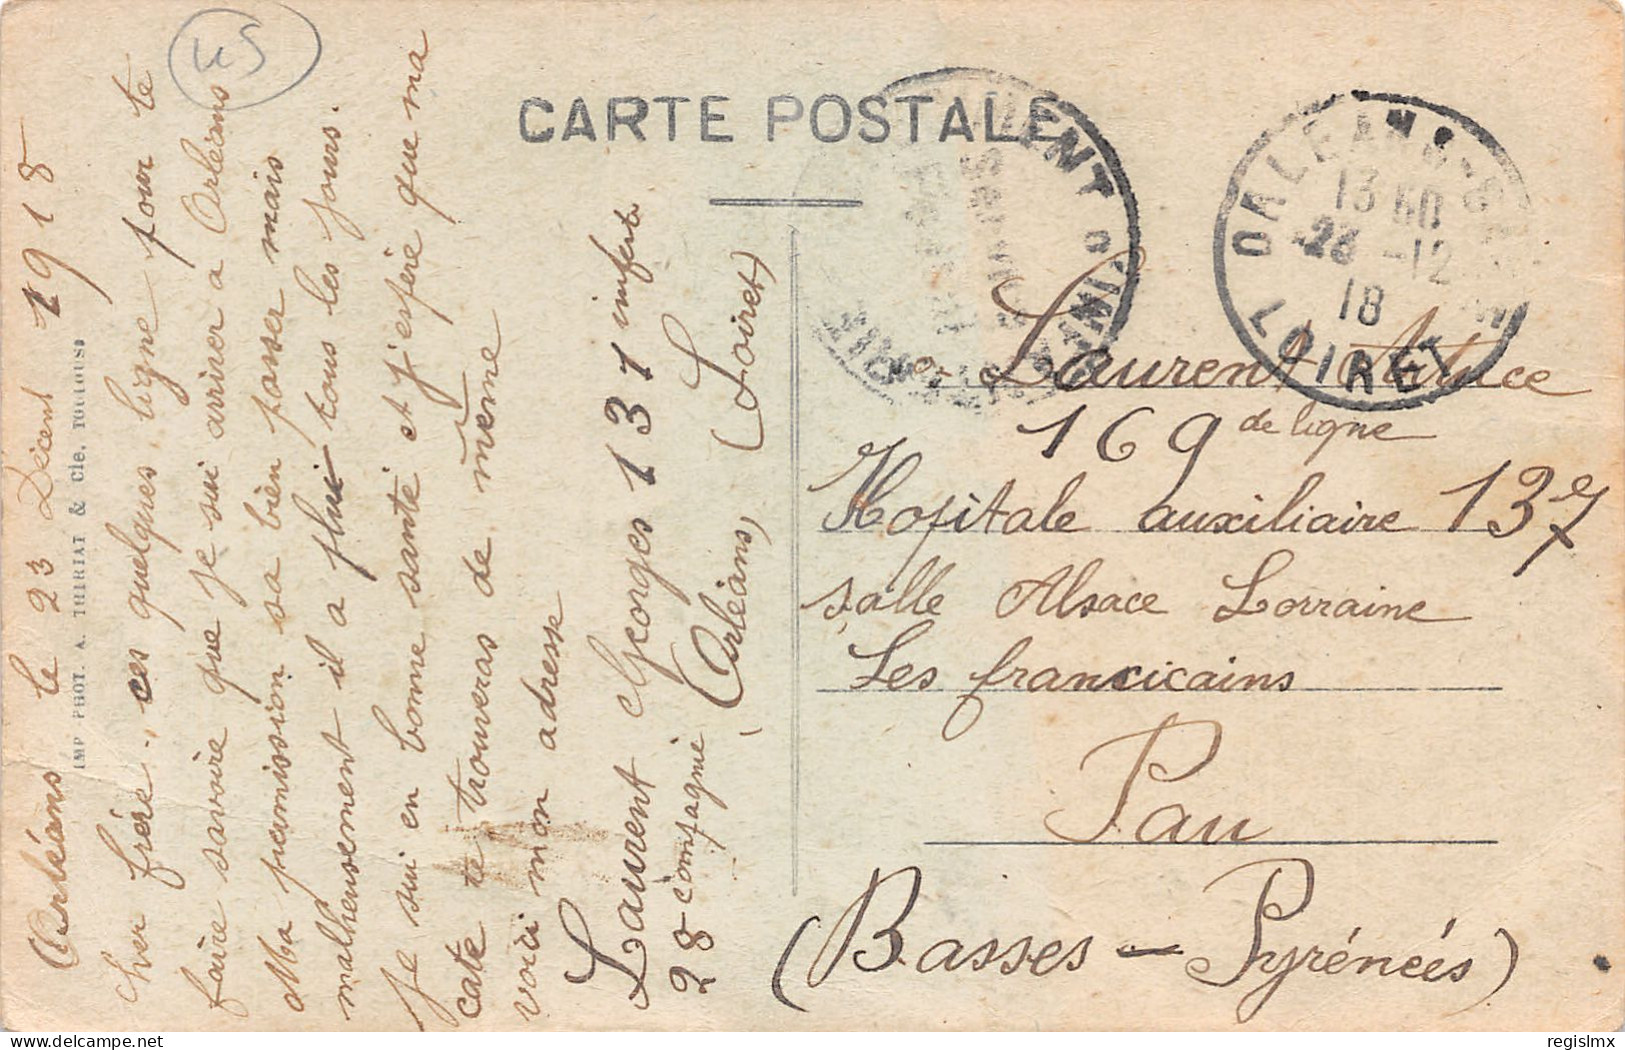 45
CARTE POSTALE
Orléans le 23 Décent 1918
cher frère. ces quelques ligne pour te
faire savoire que je sui arriver a Orléans
Ma permission sa bien passer mais
malheusement il a plui tous les jours.
Je sui en bonne santé et j'espère que ma
cate te trouveras de même
voici mon adresse
Laurent Georges 131 infert
28 compagnie
(Orléans) (Loiret)
IMP PHOT. A. THIRIAT & Cie, TOULOUSE
ORLEANS
13 50
23 -12
18
LOIRET
Laurent
169 de ligne
Hopitale auxiliaire 137
salle Alsace Lorraine
Les francicains
Pau
(Basses-Pyrénéés)
regislmx
delcampe.net